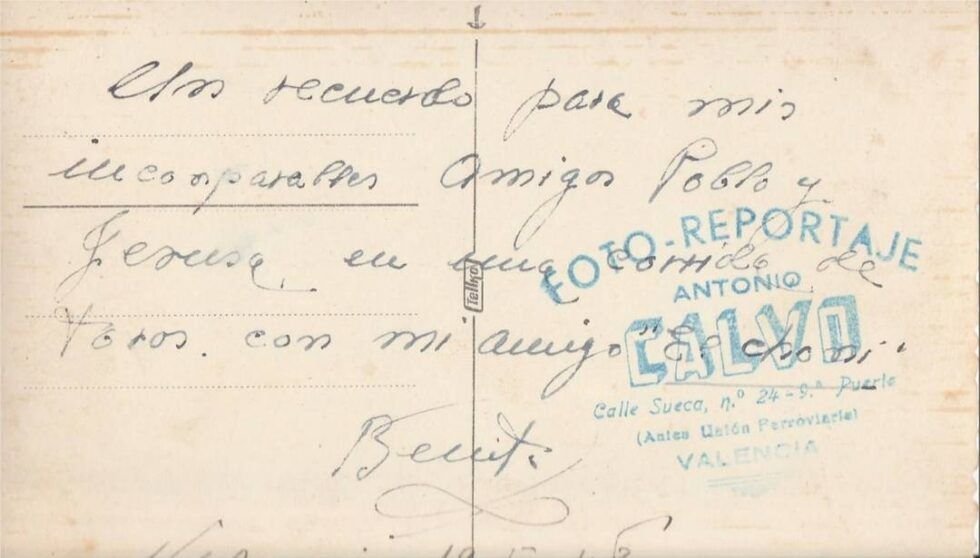 Un recuerdo para mis
incomparables Amigos Pablo y
Jerusa, en una corrida de
toros. con mi amigo "El choni.
Benito
Tellko
FOTO-REPORTAJE
ANTONIO
CALVO
Calle Sueca, n.º 24-9.ª Puerta
(Antes Unión Ferroviaria)
VALENCIA